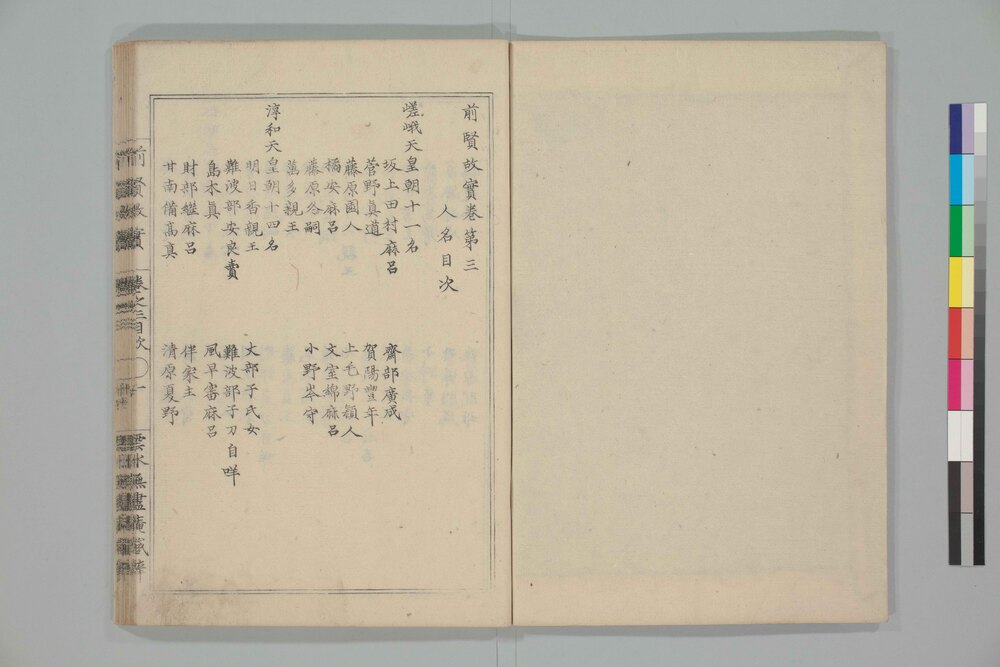 前賢故實卷第三
人名目次
嵯峨天皇朝十一名
坂上田村麻呂
齋部廣成
菅野真道
賀陽豐年
藤原園人
上毛野穎人
橘安麻呂
文室綿麻呂
藤原冬嗣
小野岑守
萬多親王
淳和天皇朝十四名
明日香親王
丈部子氏女
難波部安良賣
難波部子刀自咩
島木真
風早審麻呂
財部繼麻呂
伴家主
甘南備高真
清原夏野
前賢故實
卷之三目次
一
雲水無盡庵藏梓